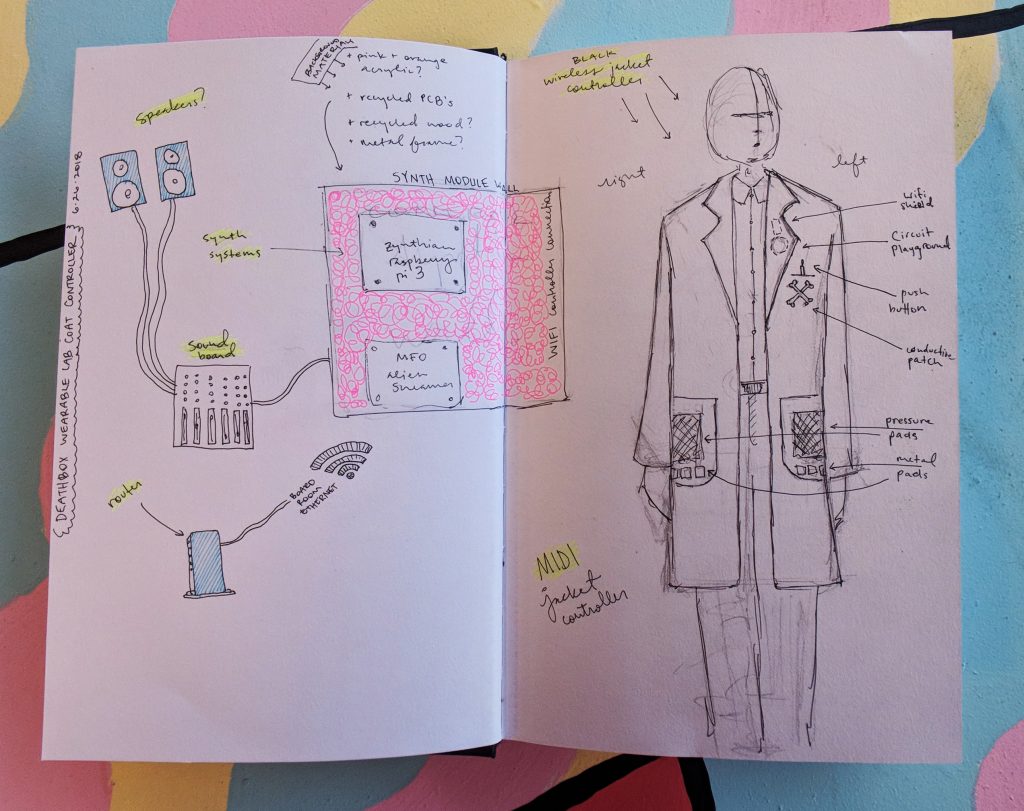 {DEATHBOX WEARABLE LAB COAT CONTROLLER} 6·26·2018
Speakers?
BACKGROUND
MATERIAL
+ pink + orange
acrylic?
+ recycled PCB's
+ recycled wood?
+ metal frame?
SYNTH MODULE WALL
synth
systems
Zynthian
raspberry
pi 3
MFO
alien
Screamer
WIFI controller connection
sound
board
router
BOARD
ROOM
ETHERNET
BLACK
wireless jacket
controller
right
left
wifi
shield
Circuit
playground
push
button
conductive
patch
pressure
pads
metal
pads
MIDI
jacket
controller